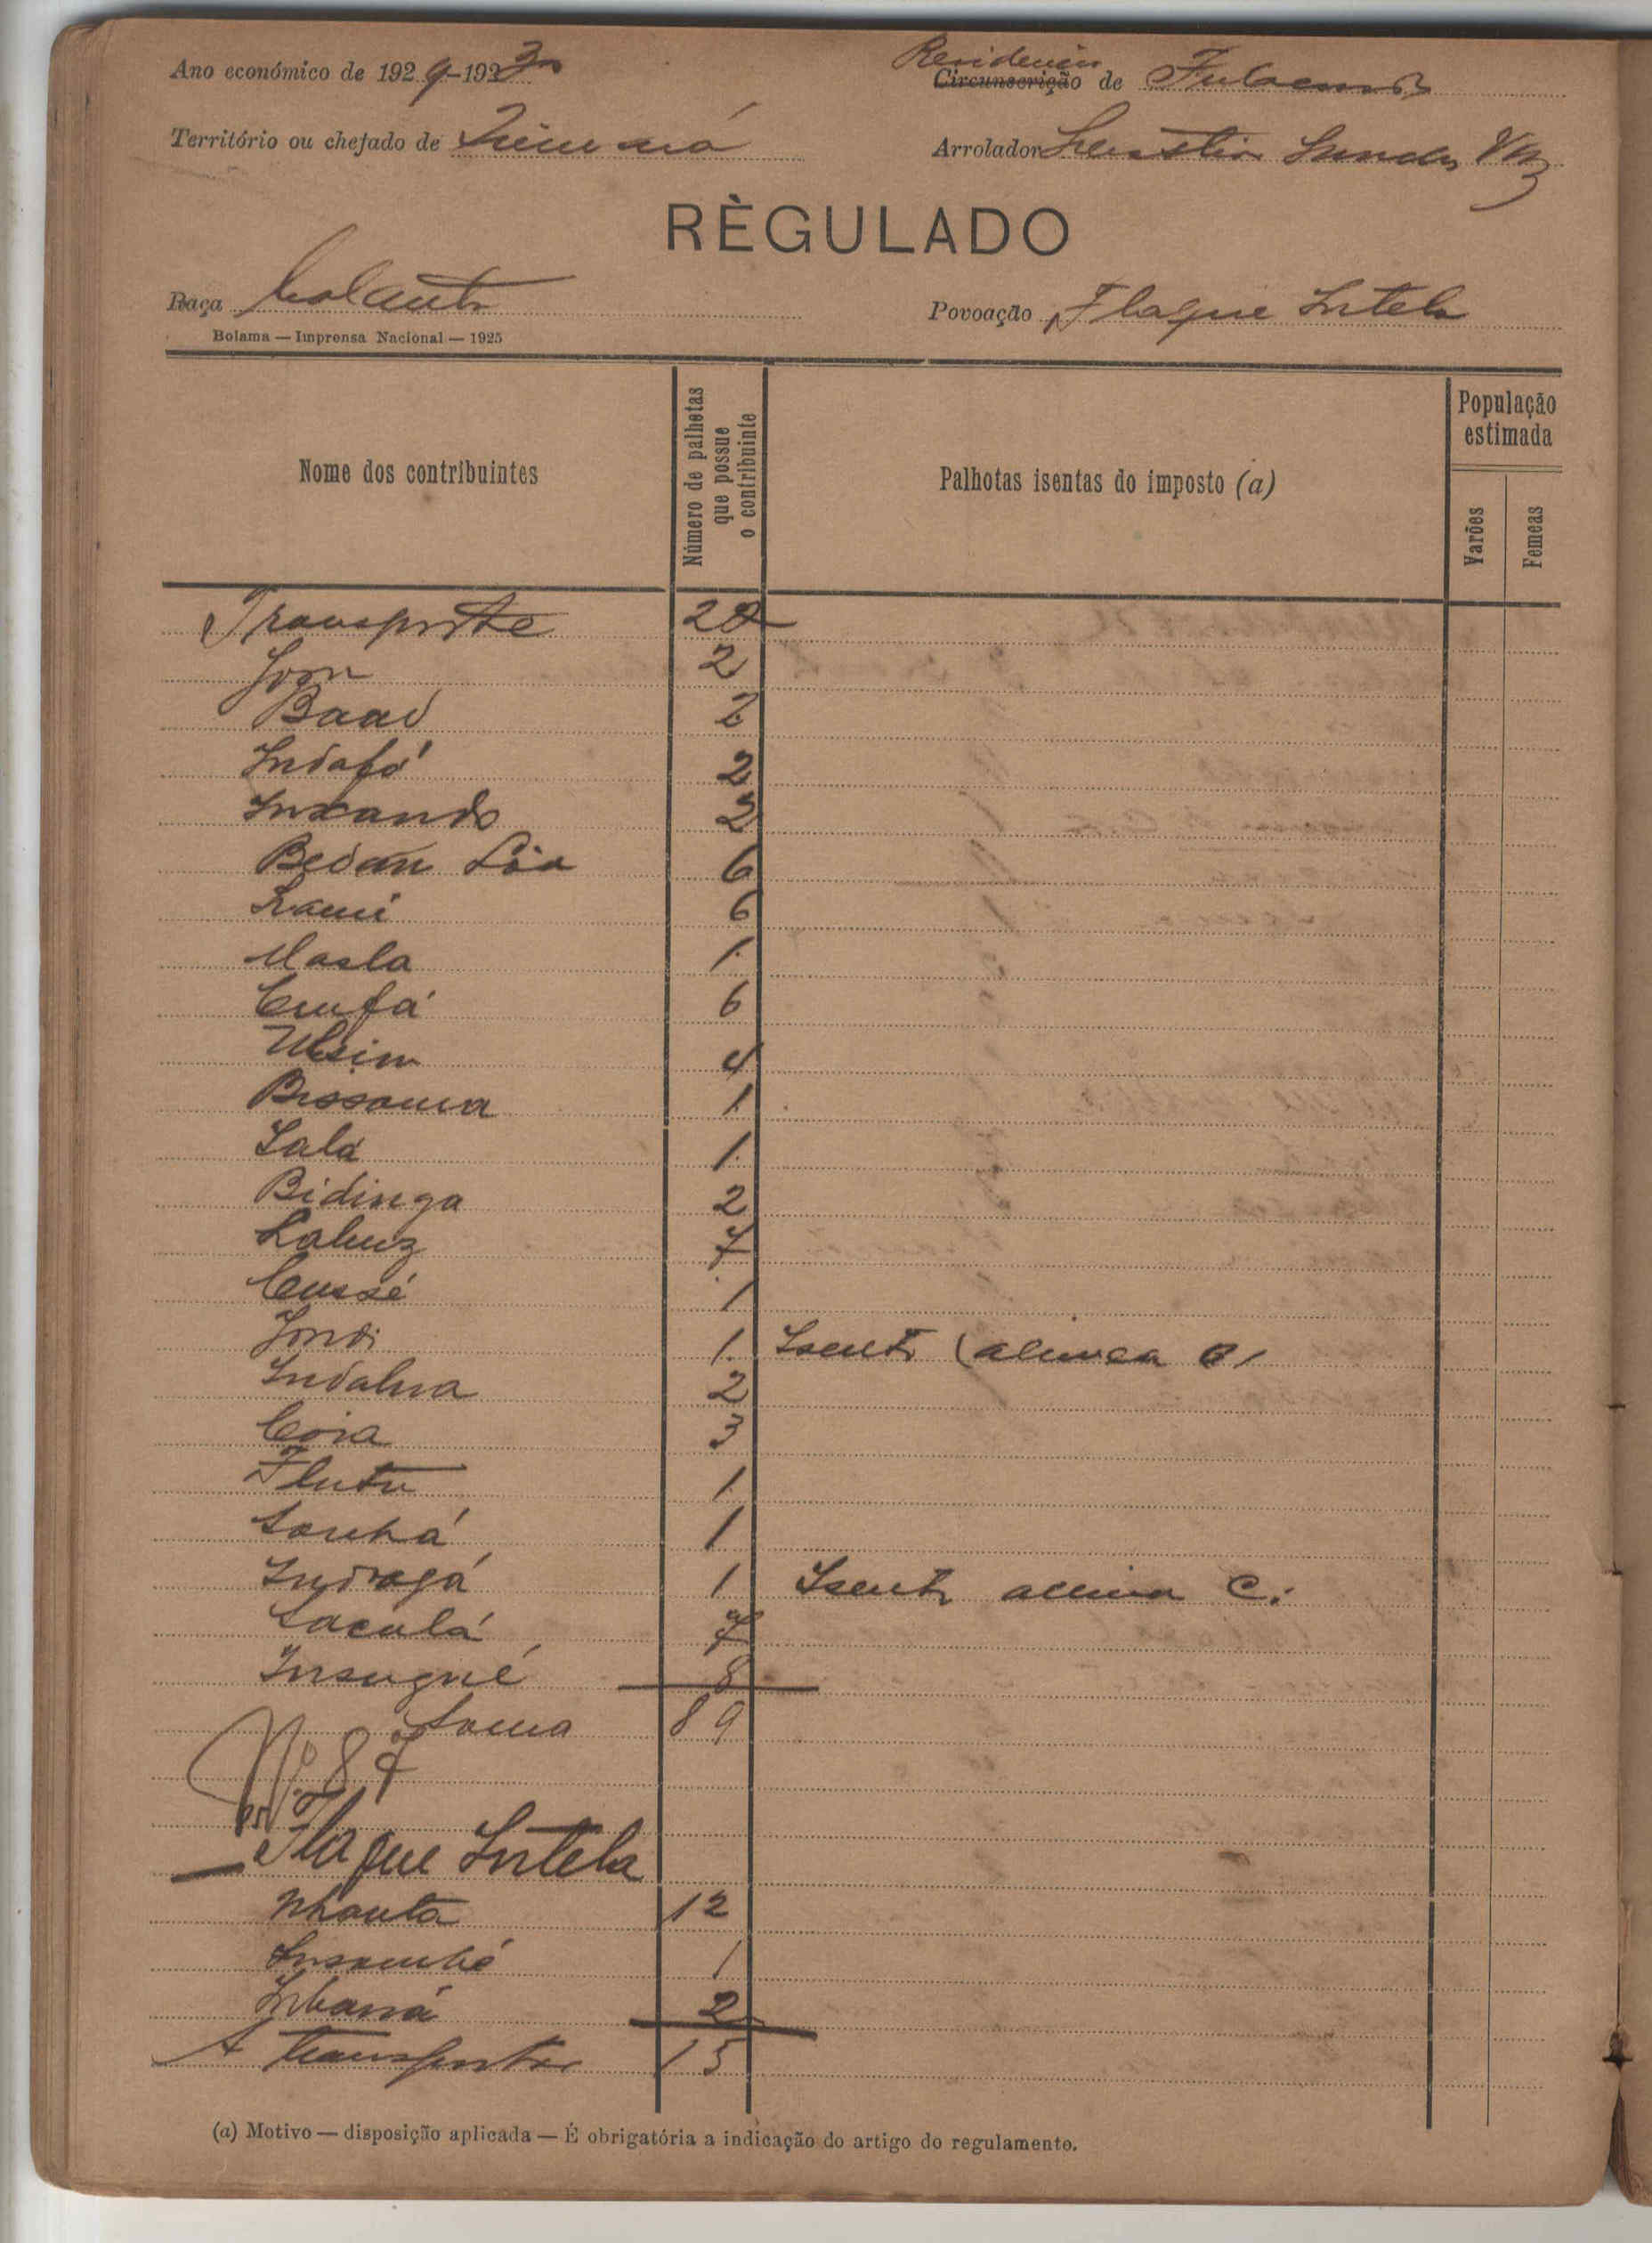 Ano económico de 1929-1930
Residencia
Circunscrição de Fulacunda
Território ou chefado de
Arrolador Sebastião
RÈGULADO
Raça balanta
Povoação Flaque Intela
Bolama — Imprensa Nacional — 1925
Nome dos contribuintes
Número de palhetas que possue o contribuinte
Palhotas isentas do imposto (a)
População estimada
Varões
Femeas
Transporte 22
2
Baad 2
Indafó 2
Inxando 2
Bedan 6
Lami 6
Masla 1
Cufá 6
4
Bissoma 1
Lala 1
Bidinga 2
7
Cussé 1
Jondi 1 Isento (alinea
Indalna 2
Coia 3
Flutu 1
Sanhá 1
Indragá 1 Isento alinea C.
Saculá 7
Insugné 8
Soma 89
Nº 87
Flaque Intela
Nhanta 12
Insambé 1
Inbaná 2
A transportar 15
(a) Motivo — disposição aplicada — É obrigatória a indicação do artigo do regulamento.